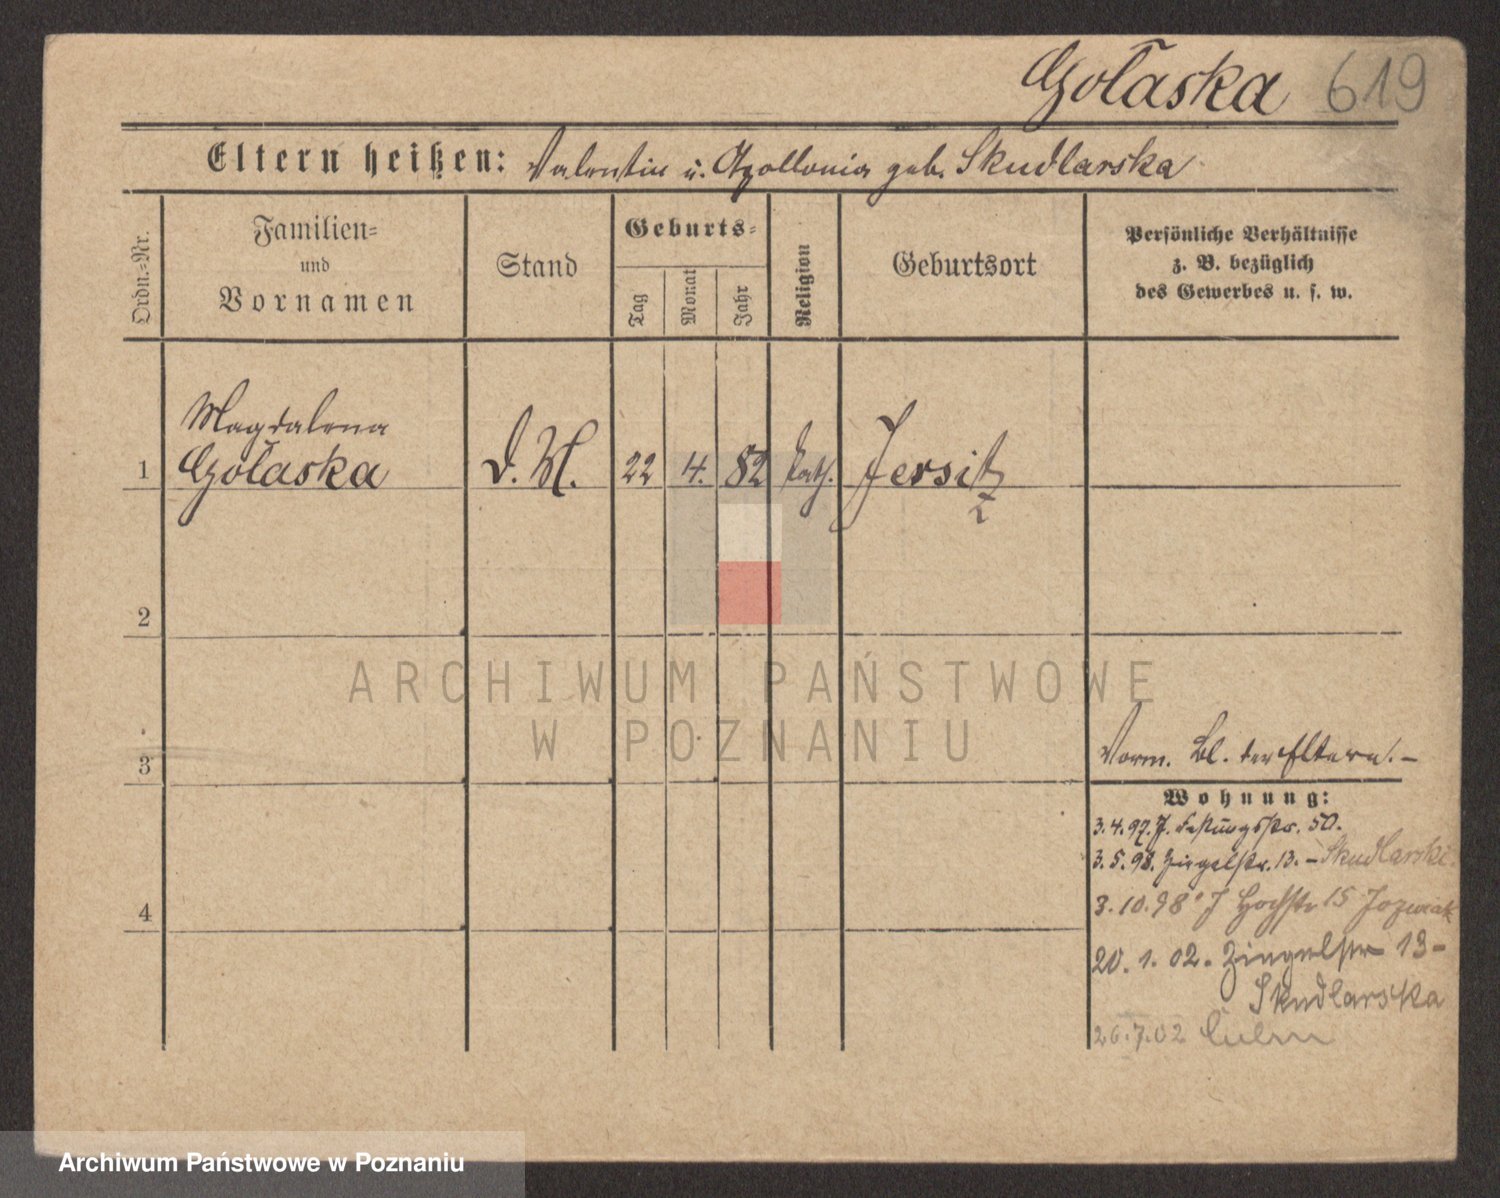 Gołaska 619
Eltern heißen: Valentin u. Apollonia geb. Skudlarska
Ordn.-Nr.
Familien-
und
Vornamen
Stand
Geburts-
Tag
Monat
Jahr
Religion
Geburtsort
Persönliche Verhältnisse
z. B. bezüglich
des Gewerbes u. s. w.
Magdalena
1 Gołaska D. M. 22 4. 82 kath. Jersitz
2
ARCHIWUM PAŃSTWOWE
W POZNANIU
3 Vorm. Bl. der Eltern.
Wohnung:
3.4.97. J. Festungsstr. 50.
3.5.98. Ziegelstr. 13. – Skudlarski
3.10.98 J Hochstr 15 Jozwiak
4
20.1.02. Ziegelstr 13-
Skudlarska
26.7.02
Archiwum Państwowe w Poznaniu